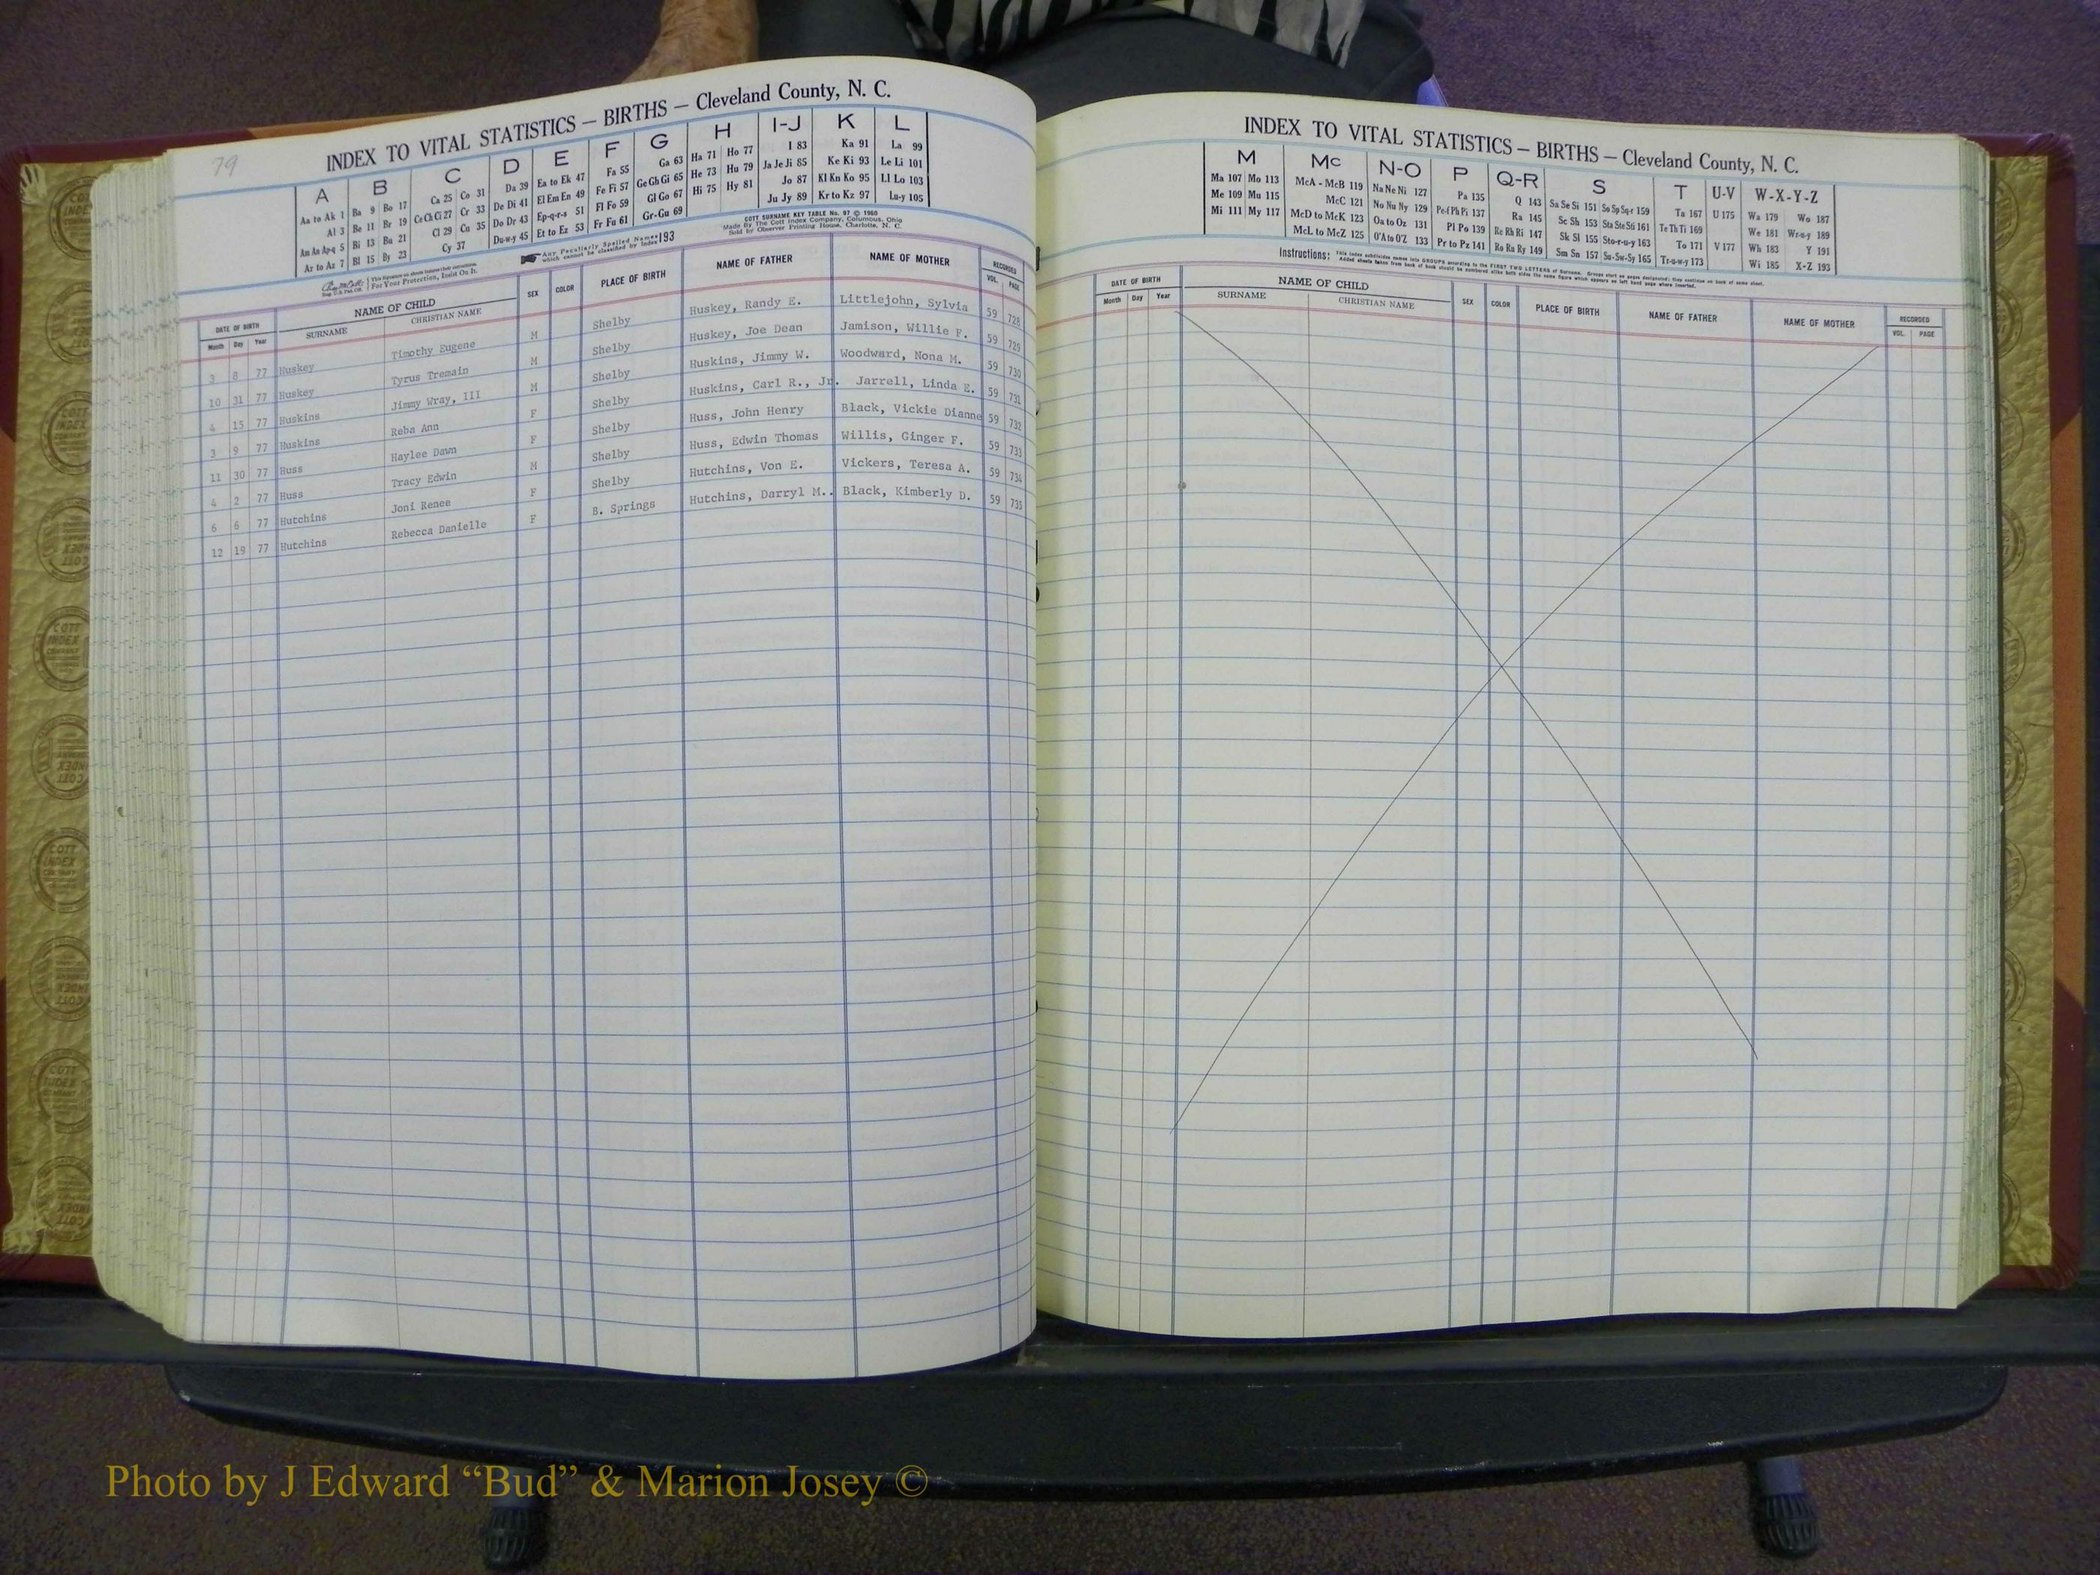 79
INDEX TO VITAL STATISTICS — BIRTHS — Cleveland County, N. C.
A B C D E F G H I-J K L
Aa to Ak 1 Ba 9 Bo 17 Ca 25 Co 31 Da 39 Ea to Ek 47 Fa 55 Ga 63 Ha 71 Ho 77 I 83 Ka 91 La 99
Al 3 Be 11 Br 19 Ce Ch Ci 27 Cr 33 De Di 41 El Em En 49 Fe Fi 57 Ge Gh Gi 65 He 73 Hu 79 Ja Je Ji 85 Ke Ki 93 Le Li 101
Am An Ap-q 5 Bi 13 Bu 21 Cl 29 Cu 35 Do Dr 43 Ep-q-r-s 51 Fl Fo 59 Gl Go 67 Hi 75 Hy 81 Jo 87 Kl Kn Ko 95 Ll Lo 103
Ar to Az 7 Bl 15 By 23 Cy 37 Du-w-y 45 Et to Ez 53 Fr Fu 61 Gr-Gu 69 Ju Jy 89 Kr to Kz 97 Lu-y 105
This Signature on sheets insures their correctness.
For Your Protection, Insist On It.
Any Peculiarly Spelled Names which cannot be classified by Index 193
COTT SURNAME KEY TABLE No. 97 © 1960
Made By The Cott Index Company, Columbus, Ohio
Sold by Observer Printing House, Charlotte, N. C.
DATE OF BIRTH NAME OF CHILD SEX COLOR PLACE OF BIRTH NAME OF FATHER NAME OF MOTHER RECORDED
Month Day Year SURNAME CHRISTIAN NAME VOL. PAGE
3 8 77 Huskey Timothy Eugene M Shelby Huskey, Randy E. Littlejohn, Sylvia 59 728
10 31 77 Huskey Tyrus Tremain M Shelby Huskey, Joe Dean Jamison, Willie F. 59 729
4 15 77 Huskins Jimmy Wray, III M Shelby Huskins, Jimmy W. Woodward, Nona M. 59 730
3 9 77 Huskins Reba Ann F Shelby Huskins, Carl R., Jr. Jarrell, Linda E. 59 731
11 30 77 Huss Haylee Dawn F Shelby Huss, John Henry Black, Vickie Dianne 59 732
4 2 77 Huss Tracy Edwin M Shelby Huss, Edwin Thomas Willis, Ginger F. 59 733
6 6 77 Hutchins Joni Renee F Shelby Hutchins, Von E. Vickers, Teresa A. 59 734
12 19 77 Hutchins Rebecca Danielle F B. Springs Hutchins, Darryl M.. Black, Kimberly D. 59 735
INDEX TO VITAL STATISTICS — BIRTHS — Cleveland County, N. C.
M Mc N-O P Q-R S T U-V W-X-Y-Z
Ma 107 Mo 113 McA - McB 119 Na Ne Ni 127 Pa 135 Q 143 Sa Se Si 151 So Sp Sq-r 159 Ta 167 U 175 Wa 179 Wo 187
Me 109 Mu 115 McC 121 No Nu Ny 129 Pe-f Ph Pi 137 Ra 145 Sc Sh 153 Sta Ste Sti 161 Te Th Ti 169 We 181 Wr-u-y 189
Mi 111 My 117 McD to McK 123 Oa to Oz 131 Pl Po 139 Re Rh Ri 147 Sk Sl 155 Sto-r-u-y 163 To 171 V 177 Wh 183 Y 191
McL to McZ 125 O'A to O'Z 133 Pr to Pz 141 Ro Ru Ry 149 Sm Sn 157 Su-Sw-Sy 165 Tr-u-w-y 173 Wi 185 X-Z 193
Instructions: This index subdivides names into GROUPS according to the FIRST TWO LETTERS of Surname. Groups start on pages designated; they continue on back of same sheet.
Added sheets taken from back of book should be numbered alike both sides the same figure which appears on left hand page where inserted.
DATE OF BIRTH NAME OF CHILD SEX COLOR PLACE OF BIRTH NAME OF FATHER NAME OF MOTHER RECORDED
Month Day Year SURNAME CHRISTIAN NAME VOL. PAGE
Photo by J Edward “Bud” & Marion Josey ©